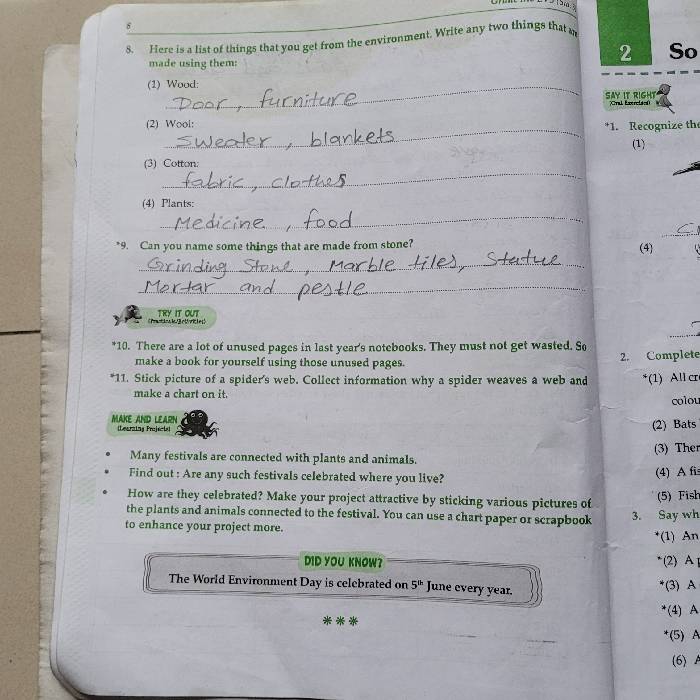 8
8. Here is a list of things that you get from the environment. Write any two things that are
made using them:
(1) Wood:
Door, furniture
(2) Wool:
Sweater, blankets
(3) Cotton:
fabric, clothes
(4) Plants:
Medicine, food
*9. Can you name some things that are made from stone?
Grinding Stone, Marble tiles, Statue
Mortar and pestle
TRY IT OUT
(Practicals/Activities)
*10. There are a lot of unused pages in last year's notebooks. They must not get wasted. So
make a book for yourself using those unused pages.
*11. Stick picture of a spider's web. Collect information why a spider weaves a web and
make a chart on it.
MAKE AND LEARN
(Learning Projects)
• Many festivals are connected with plants and animals.
• Find out : Are any such festivals celebrated where you live?
• How are they celebrated? Make your project attractive by sticking various pictures of
the plants and animals connected to the festival. You can use a chart paper or scrapbook
to enhance your project more.
DID YOU KNOW?
The World Environment Day is celebrated on 5th June every year.
***
2 So
SAY IT RIGHT
(Oral Exercises)
*1. Recognize the
(1)
(4)
2. Complete
*(1) All cr
colou
(2) Bats
(3) Ther
(4) A fis
(5) Fish
3. Say wh
*(1) An
*(2) A
*(3) A
*(4) A
*(5) A
(6) A